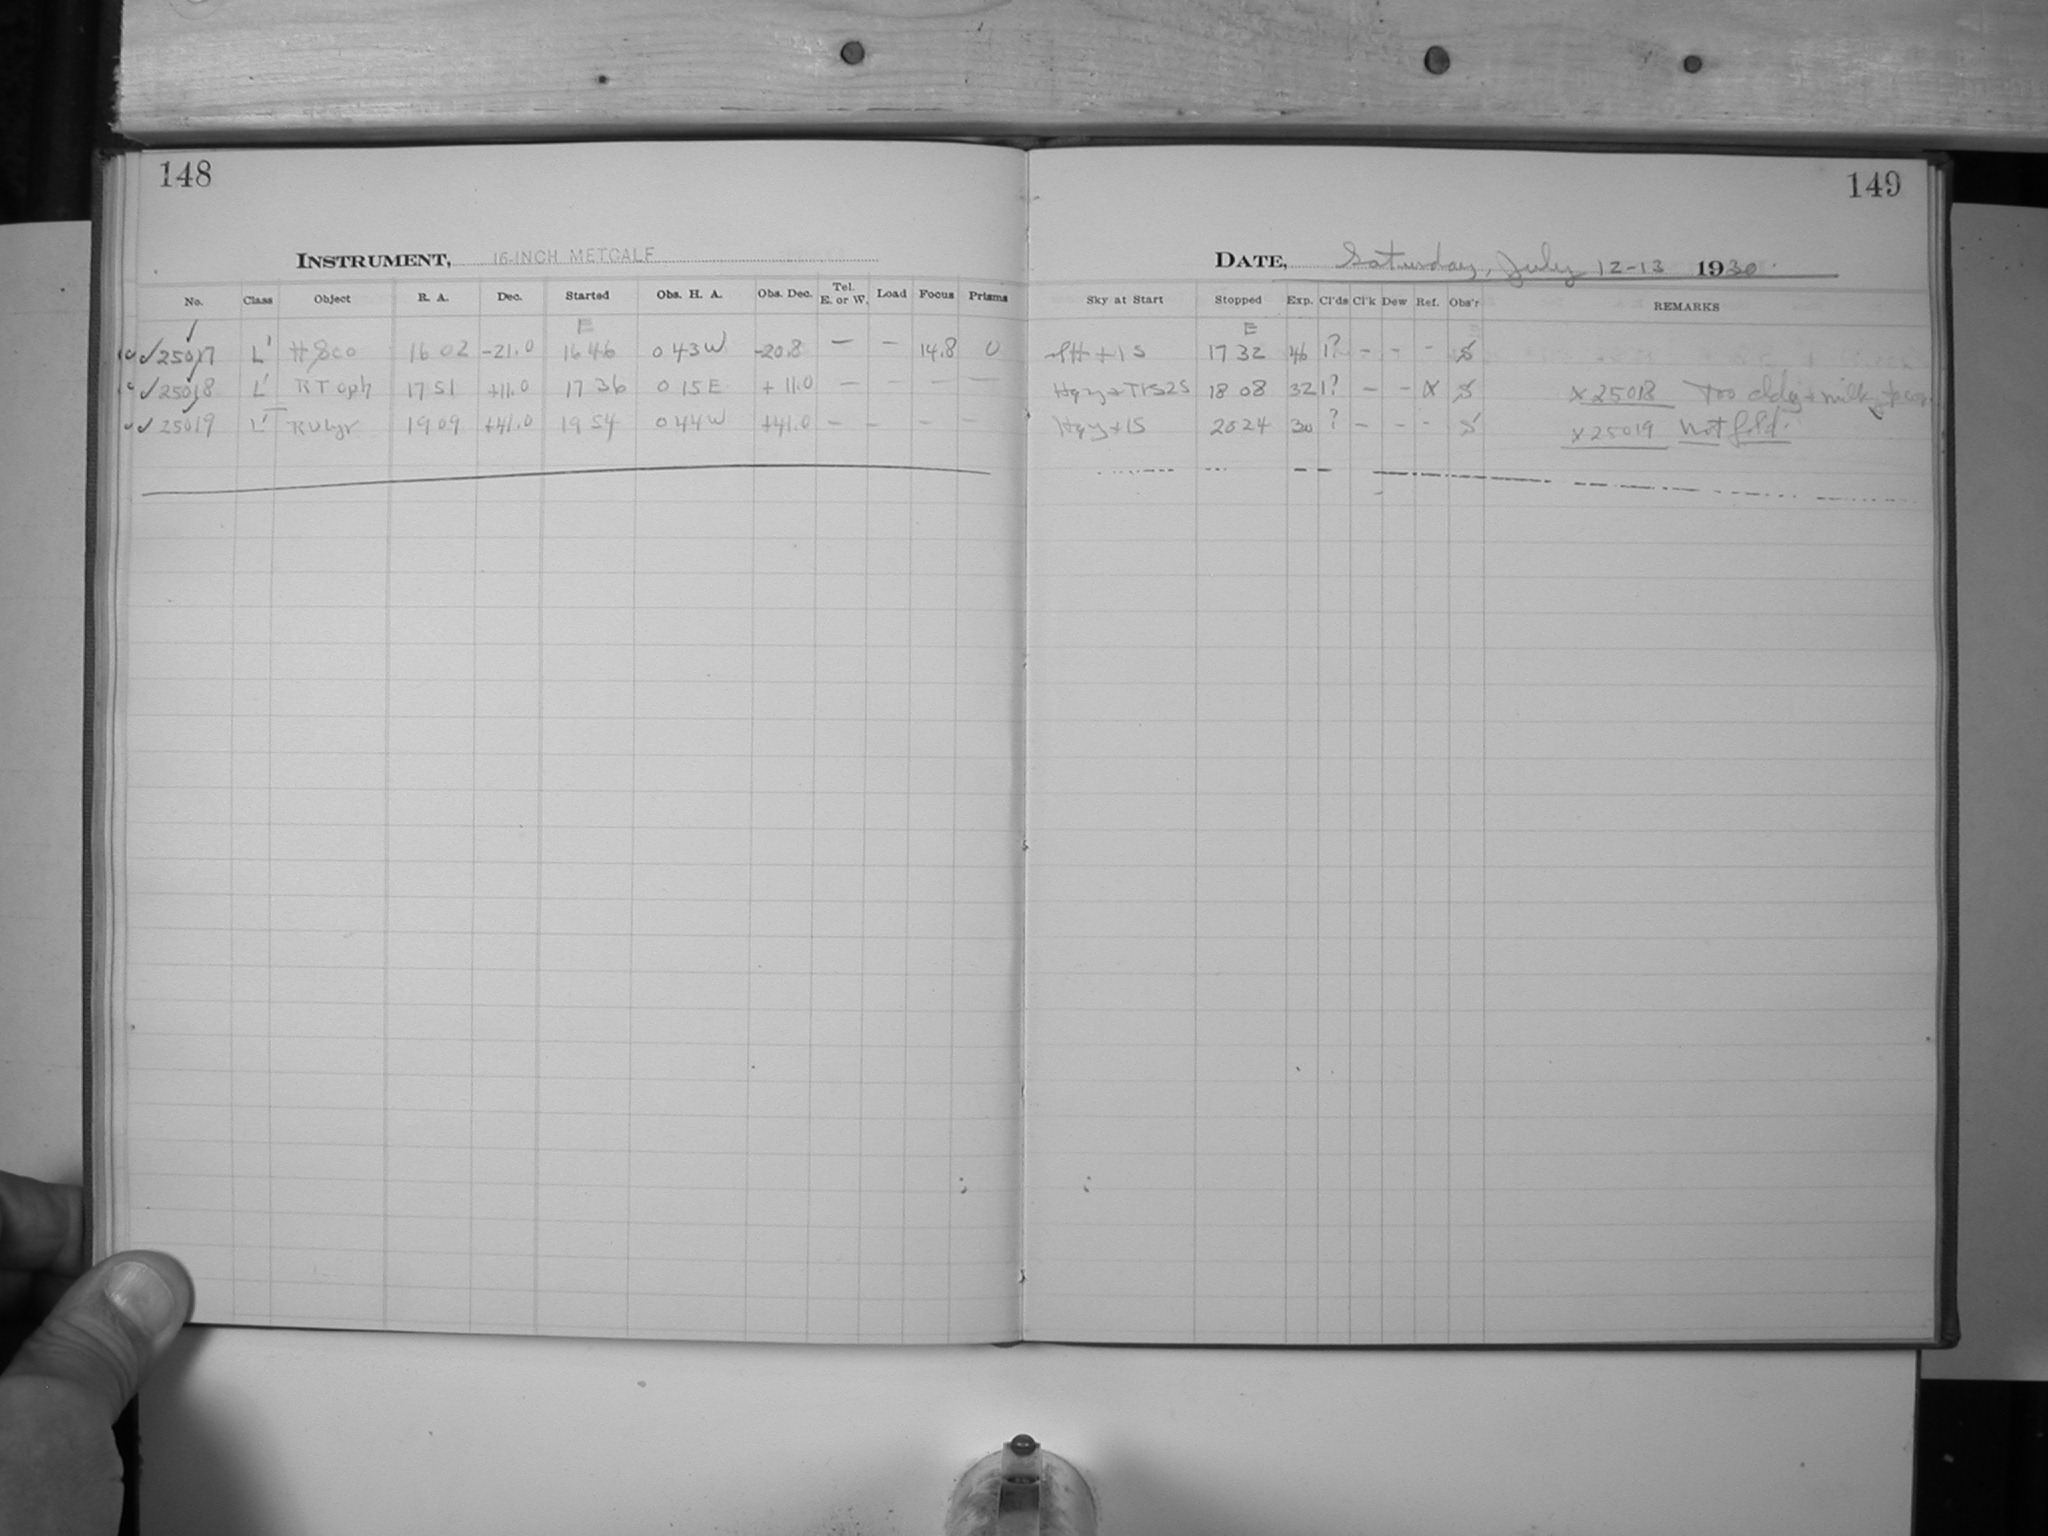 148
149
INSTRUMENT, 16-INCH METCALF
DATE, Saturday, July 12-13 1930.
No. Class Object R. A. Dec. Started Obs. H. A. Obs. Dec. Tel. E. or W. Load Focus Prisms Sky at Start Stopped Exp. Cl'ds Cl'k Dew Ref. Obs'r REMARKS
E E
✓25017 L' 16 02 -21.0 16 46 0 43W -20.8 — — 14.8 0 +1S 17 32 46 1? - - -
✓25018 L' RT Oph 17 51 +11.0 17 36 0 15E +11.0 — — — — 18 08 32 1? - - X X 25018 Too cldy + milky
✓25019 L' RV Lyr 19 09 +41.0 19 54 0 44W +41.0 — — — — Hazy+1S 20 24 30 ? - - - X 25019 Not fild.